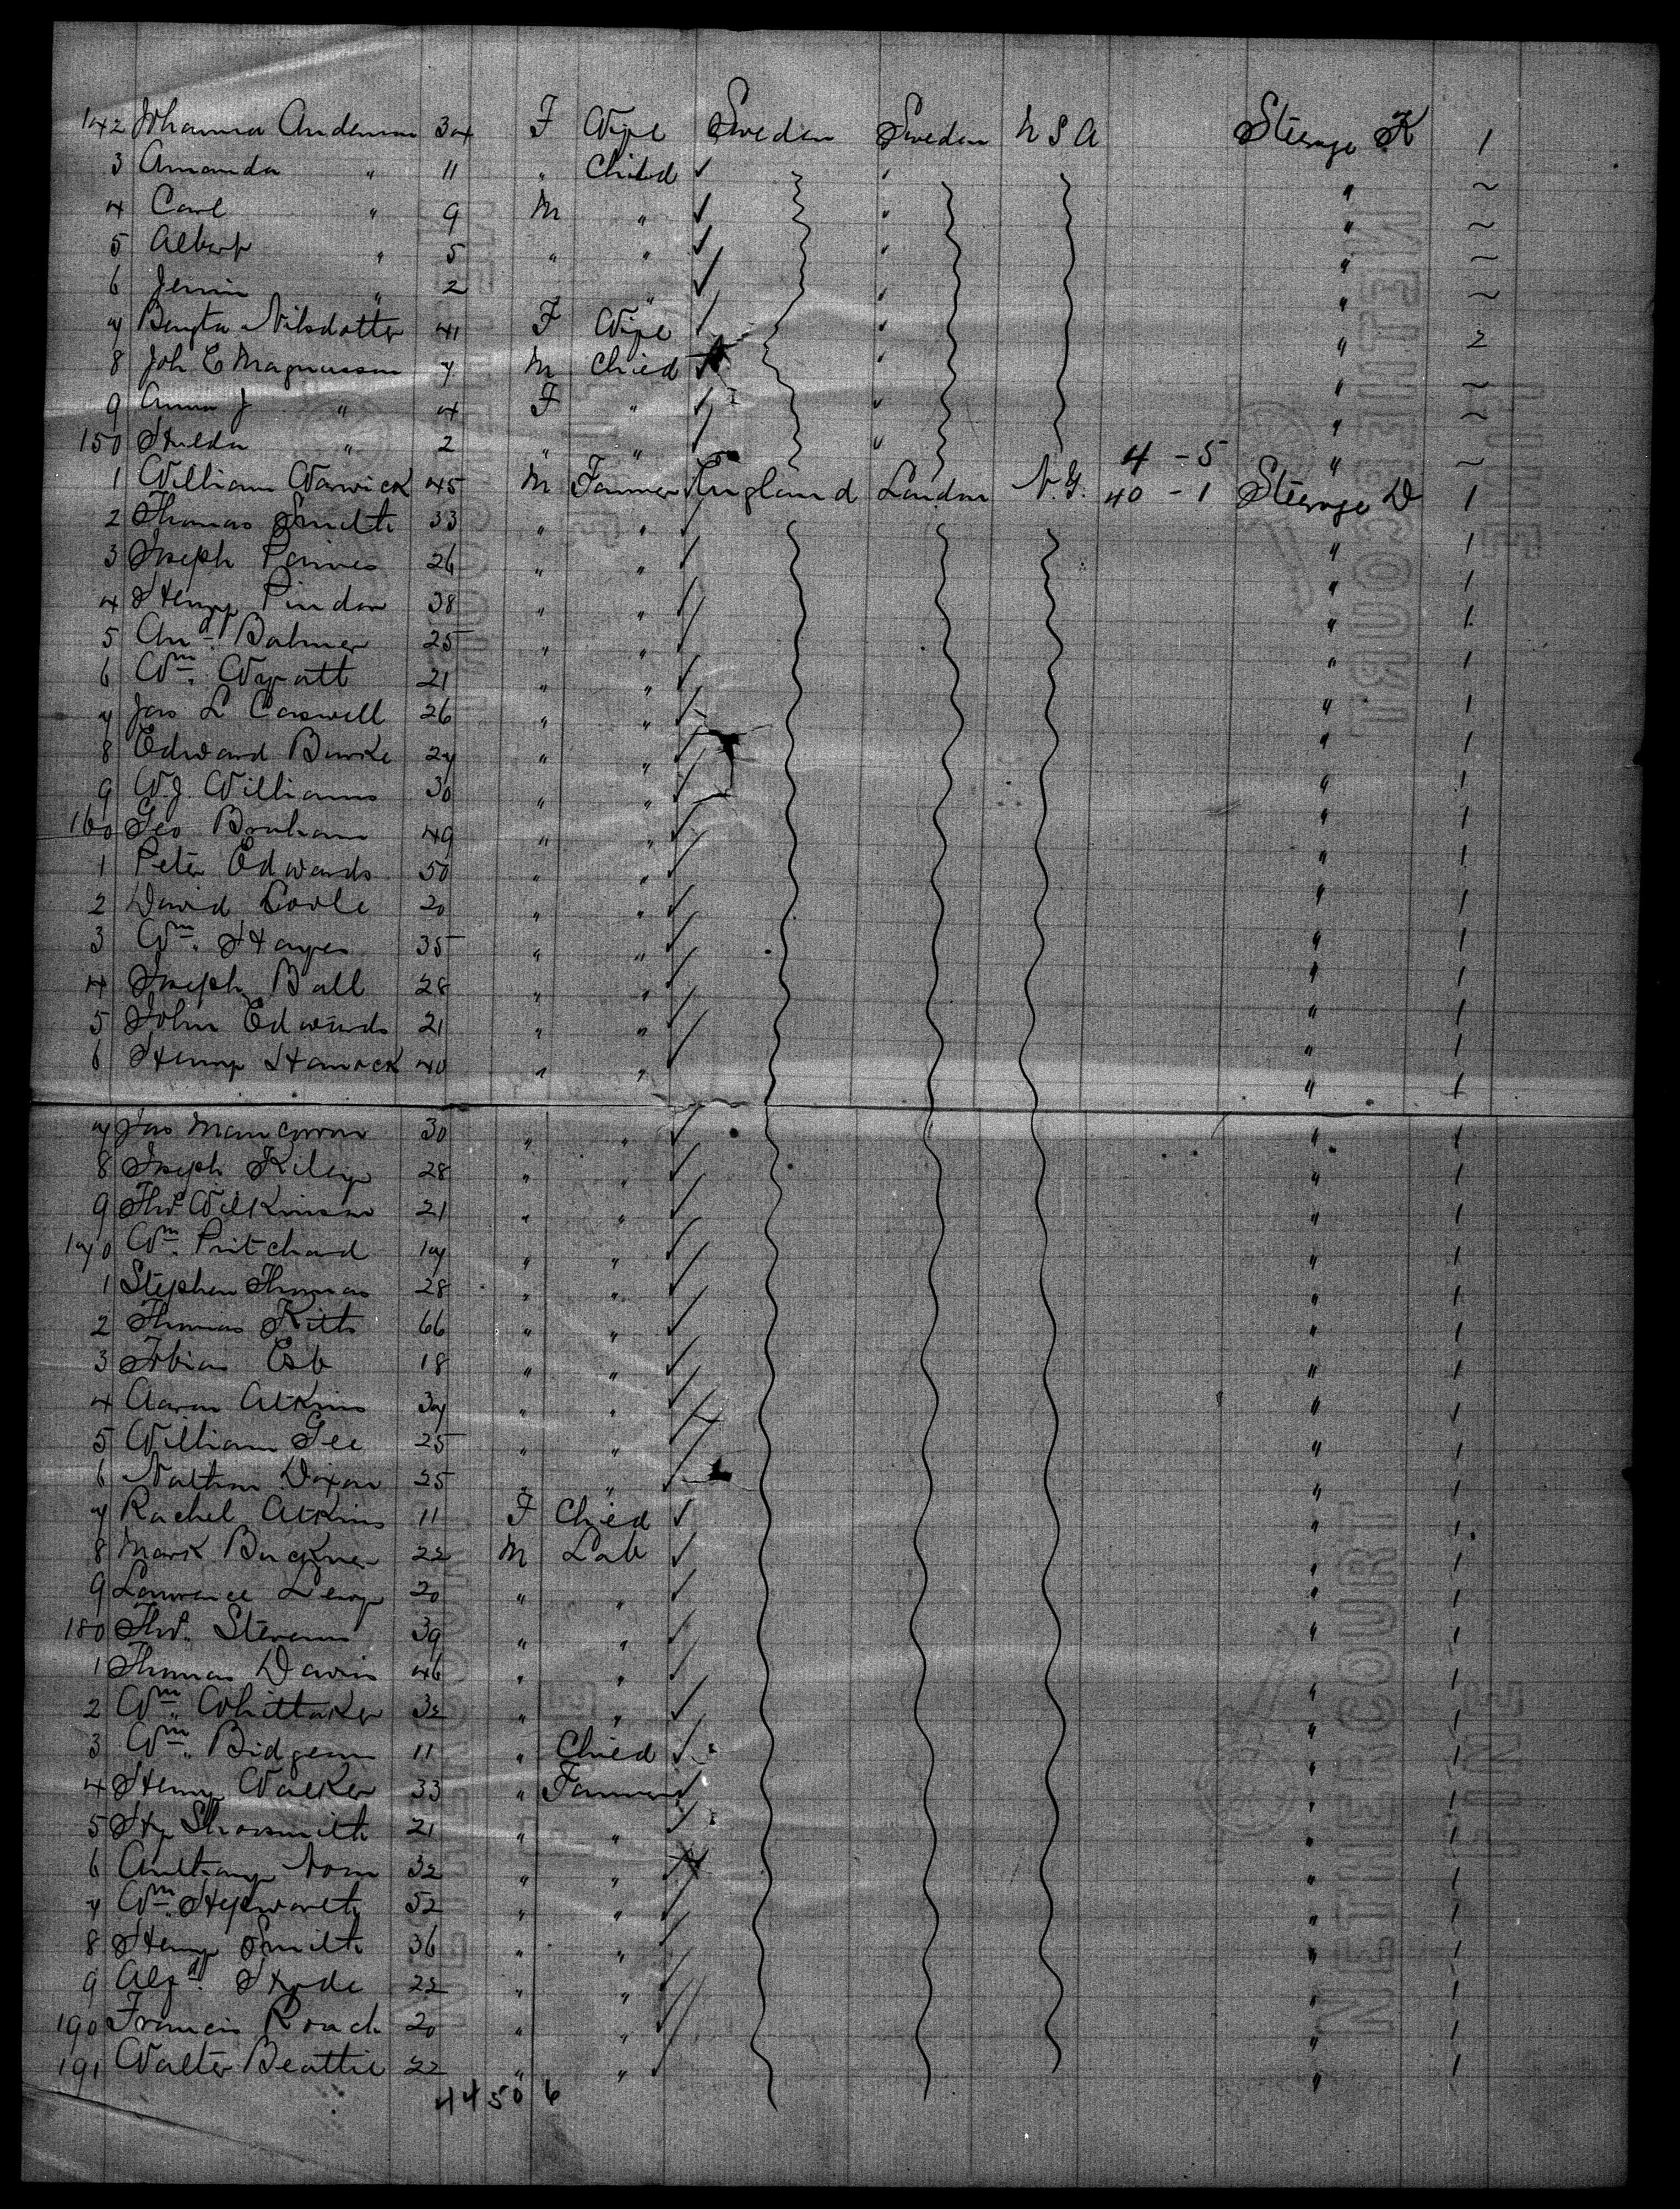 142 Johanna Anderson 34 F Wife Sweden Sweden U S A Steerage K 1
3 Amanda " 11 " Child ✓ " " ~
4 Carl " 9 M " ✓ " " ~
5 Albert " 5 " " ✓ " " ~
6 " 2 " ✓ " " ~
7 Bengta Nilsdotter 41 F Wife ✓ " " 2
8 Joh C Magnusson 7 M Child ✓ " " ~
9 Anna J " 4 F " ✓ " " ~
150 Hulda " 2 " " ✓ " " ~
4 - 5
1 William Warwick 45 M Farmer ✓ England London N.Y. 40 - 1 Steerage D 1
2 Thomas Smith 33 " " ✓ " 1
3 Joseph 26 " " ✓ " 1
4 Henry Pindar 38 " " ✓ " 1
5 And Balmer 25 " " ✓ " 1
6 Wm. Wyatt 21 " " ✓ " 1
7 Jas L Caswell 26 " " ✓ " 1
8 Edward Burke 27 " " ✓ " 1
9 W.J. Williams 30 " " ✓ " 1
160 Geo Braham 49 " " ✓ " 1
1 Peter Edwards 50 " " ✓ " 1
2 David Coole 20 " " ✓ " 1
3 Wm. Hayes 35 " " ✓ " 1
4 Joseph Ball 28 " " ✓ " 1
5 John Edwards 21 " " ✓ " 1
6 Henry Hamock 40 " " " 1
7 Jas 30 " " ✓ " 1
8 Joseph Kiley 28 " " ✓ " 1
9 Thos Wilkinson 21 " " ✓ " 1
170 Wm. Pritchard 17 " " ✓ " 1
1 Stephen Thomas 28 " " ✓ " 1
2 Thomas Kitts 66 " " ✓ " 1
3 Tobias 18 " " ✓ " 1
4 Aaron Atkins 37 " " ✓ " 1
5 William Gee 25 " " ✓ " 1
6 Nathan Dixon 25 " " ✓ " 1
7 Rachel Atkins 11 F Child ✓ " 1
8 Mark Buckner 22 M Lab ✓ " 1
9 Lawrence Leary 20 " " ✓ " 1
180 Thos. Stevens 39 " " ✓ " 1
1 Thomas Davis 46 " " ✓ " 1
2 Wm. Whittaker 32 " " ✓ " 1
3 Wm. Bidgeon 11 " Child ✓ " 1
4 Henry Walker 33 " Farmer ✓ " 1
5 Hy Shoesmith 21 " " ✓ " 1
6 Anthony 32 " " ✓ " 1
7 Wm. Hepworth 52 " " ✓ " 1
8 Henry Smith 36 " " ✓ " 1
9 Alfd. Hyde 22 " " ✓ " 1
190 Francis Roach 20 " " ✓ " 1
191 Walter Beattie 22 " " ✓ " 1
4 4 5 0 6
NETHERCOURT
FINE
NETHERCOURT
FINE